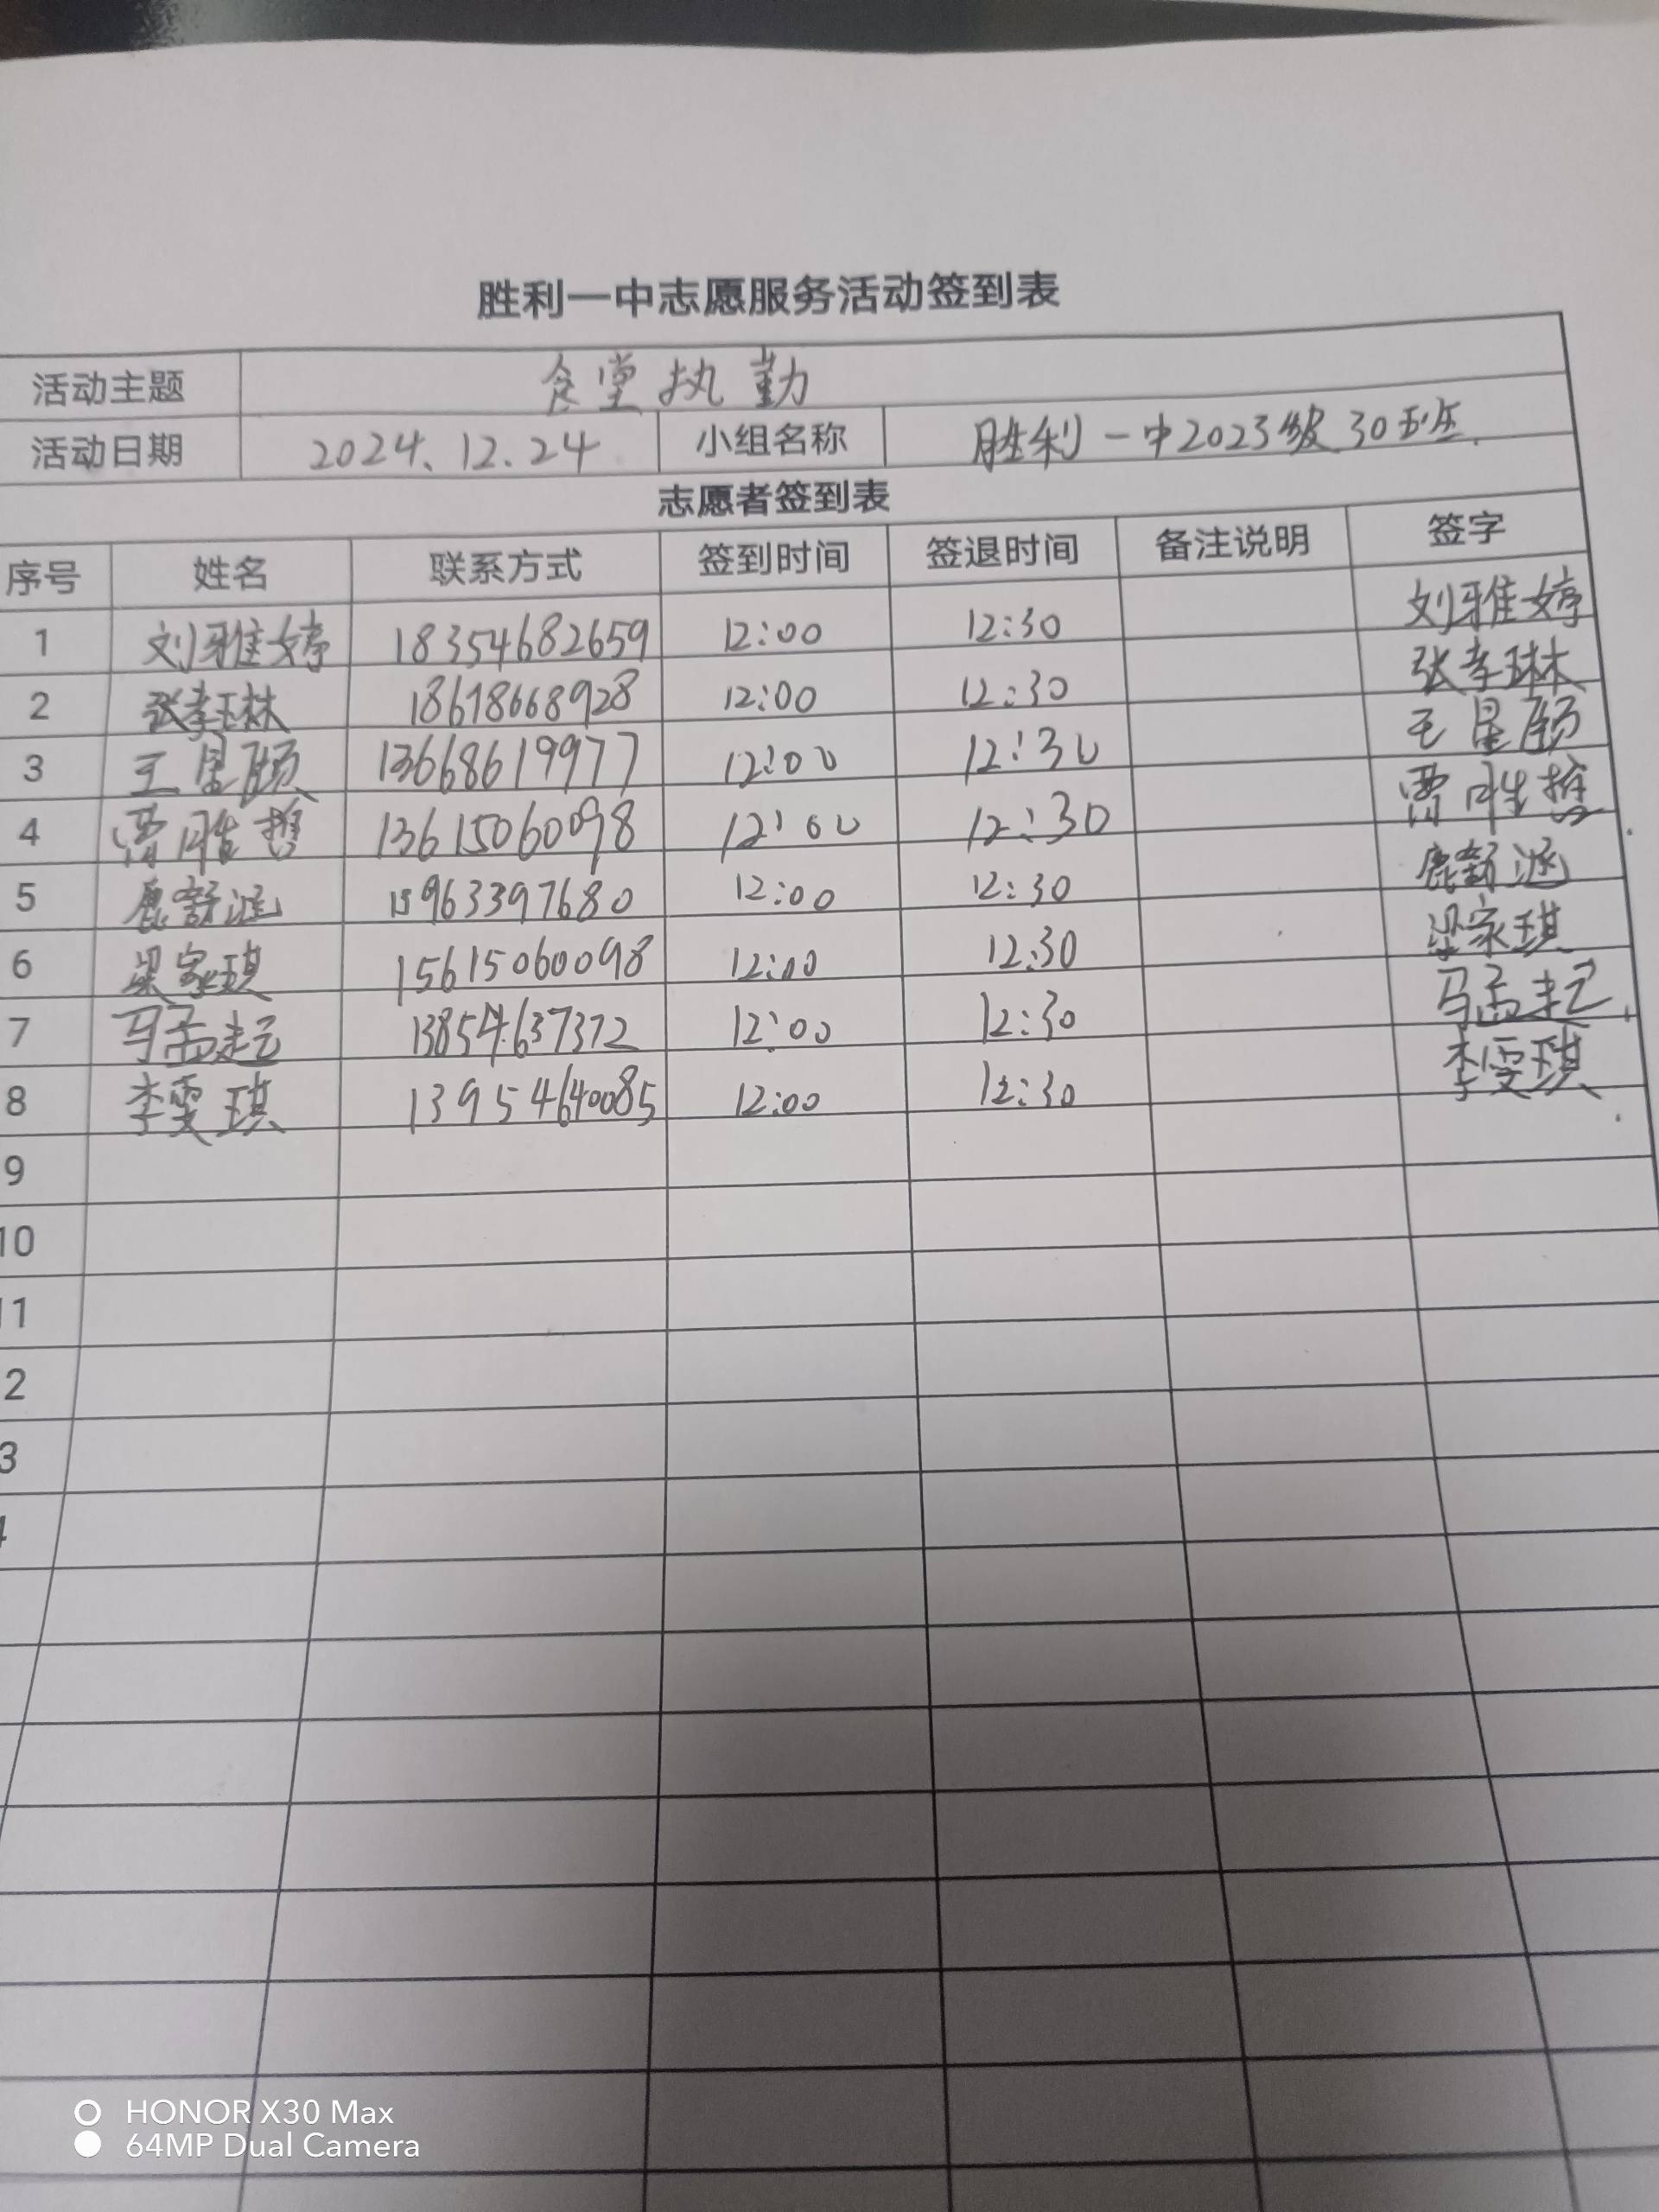 胜利一中志愿服务活动签到表
活动主题 食堂执勤
活动日期 2024.12.24 小组名称 胜利一中2023级30班
志愿者签到表
序号 姓名 联系方式 签到时间 签退时间 备注说明 签字
1 刘雅婷 18354682659 12:00 12:30 刘雅婷
2 张孝琳 18678668928 12:00 12:30 张孝琳
3 王星颐 13668619977 12:00 12:30 王星颐
4 13615060098 12:00 12:30
5 鹿舒涵 15963397680 12:00 12:30 鹿舒涵
6 梁家琪 15615060098 12:00 12:30 梁家琪
7 马孟起 13854637372 12:00 12:30 马孟起
8 李雯琪 13954640085 12:00 12:30 李雯琪
9
10
11
2
3
4
HONOR X30 Max
64MP Dual Camera